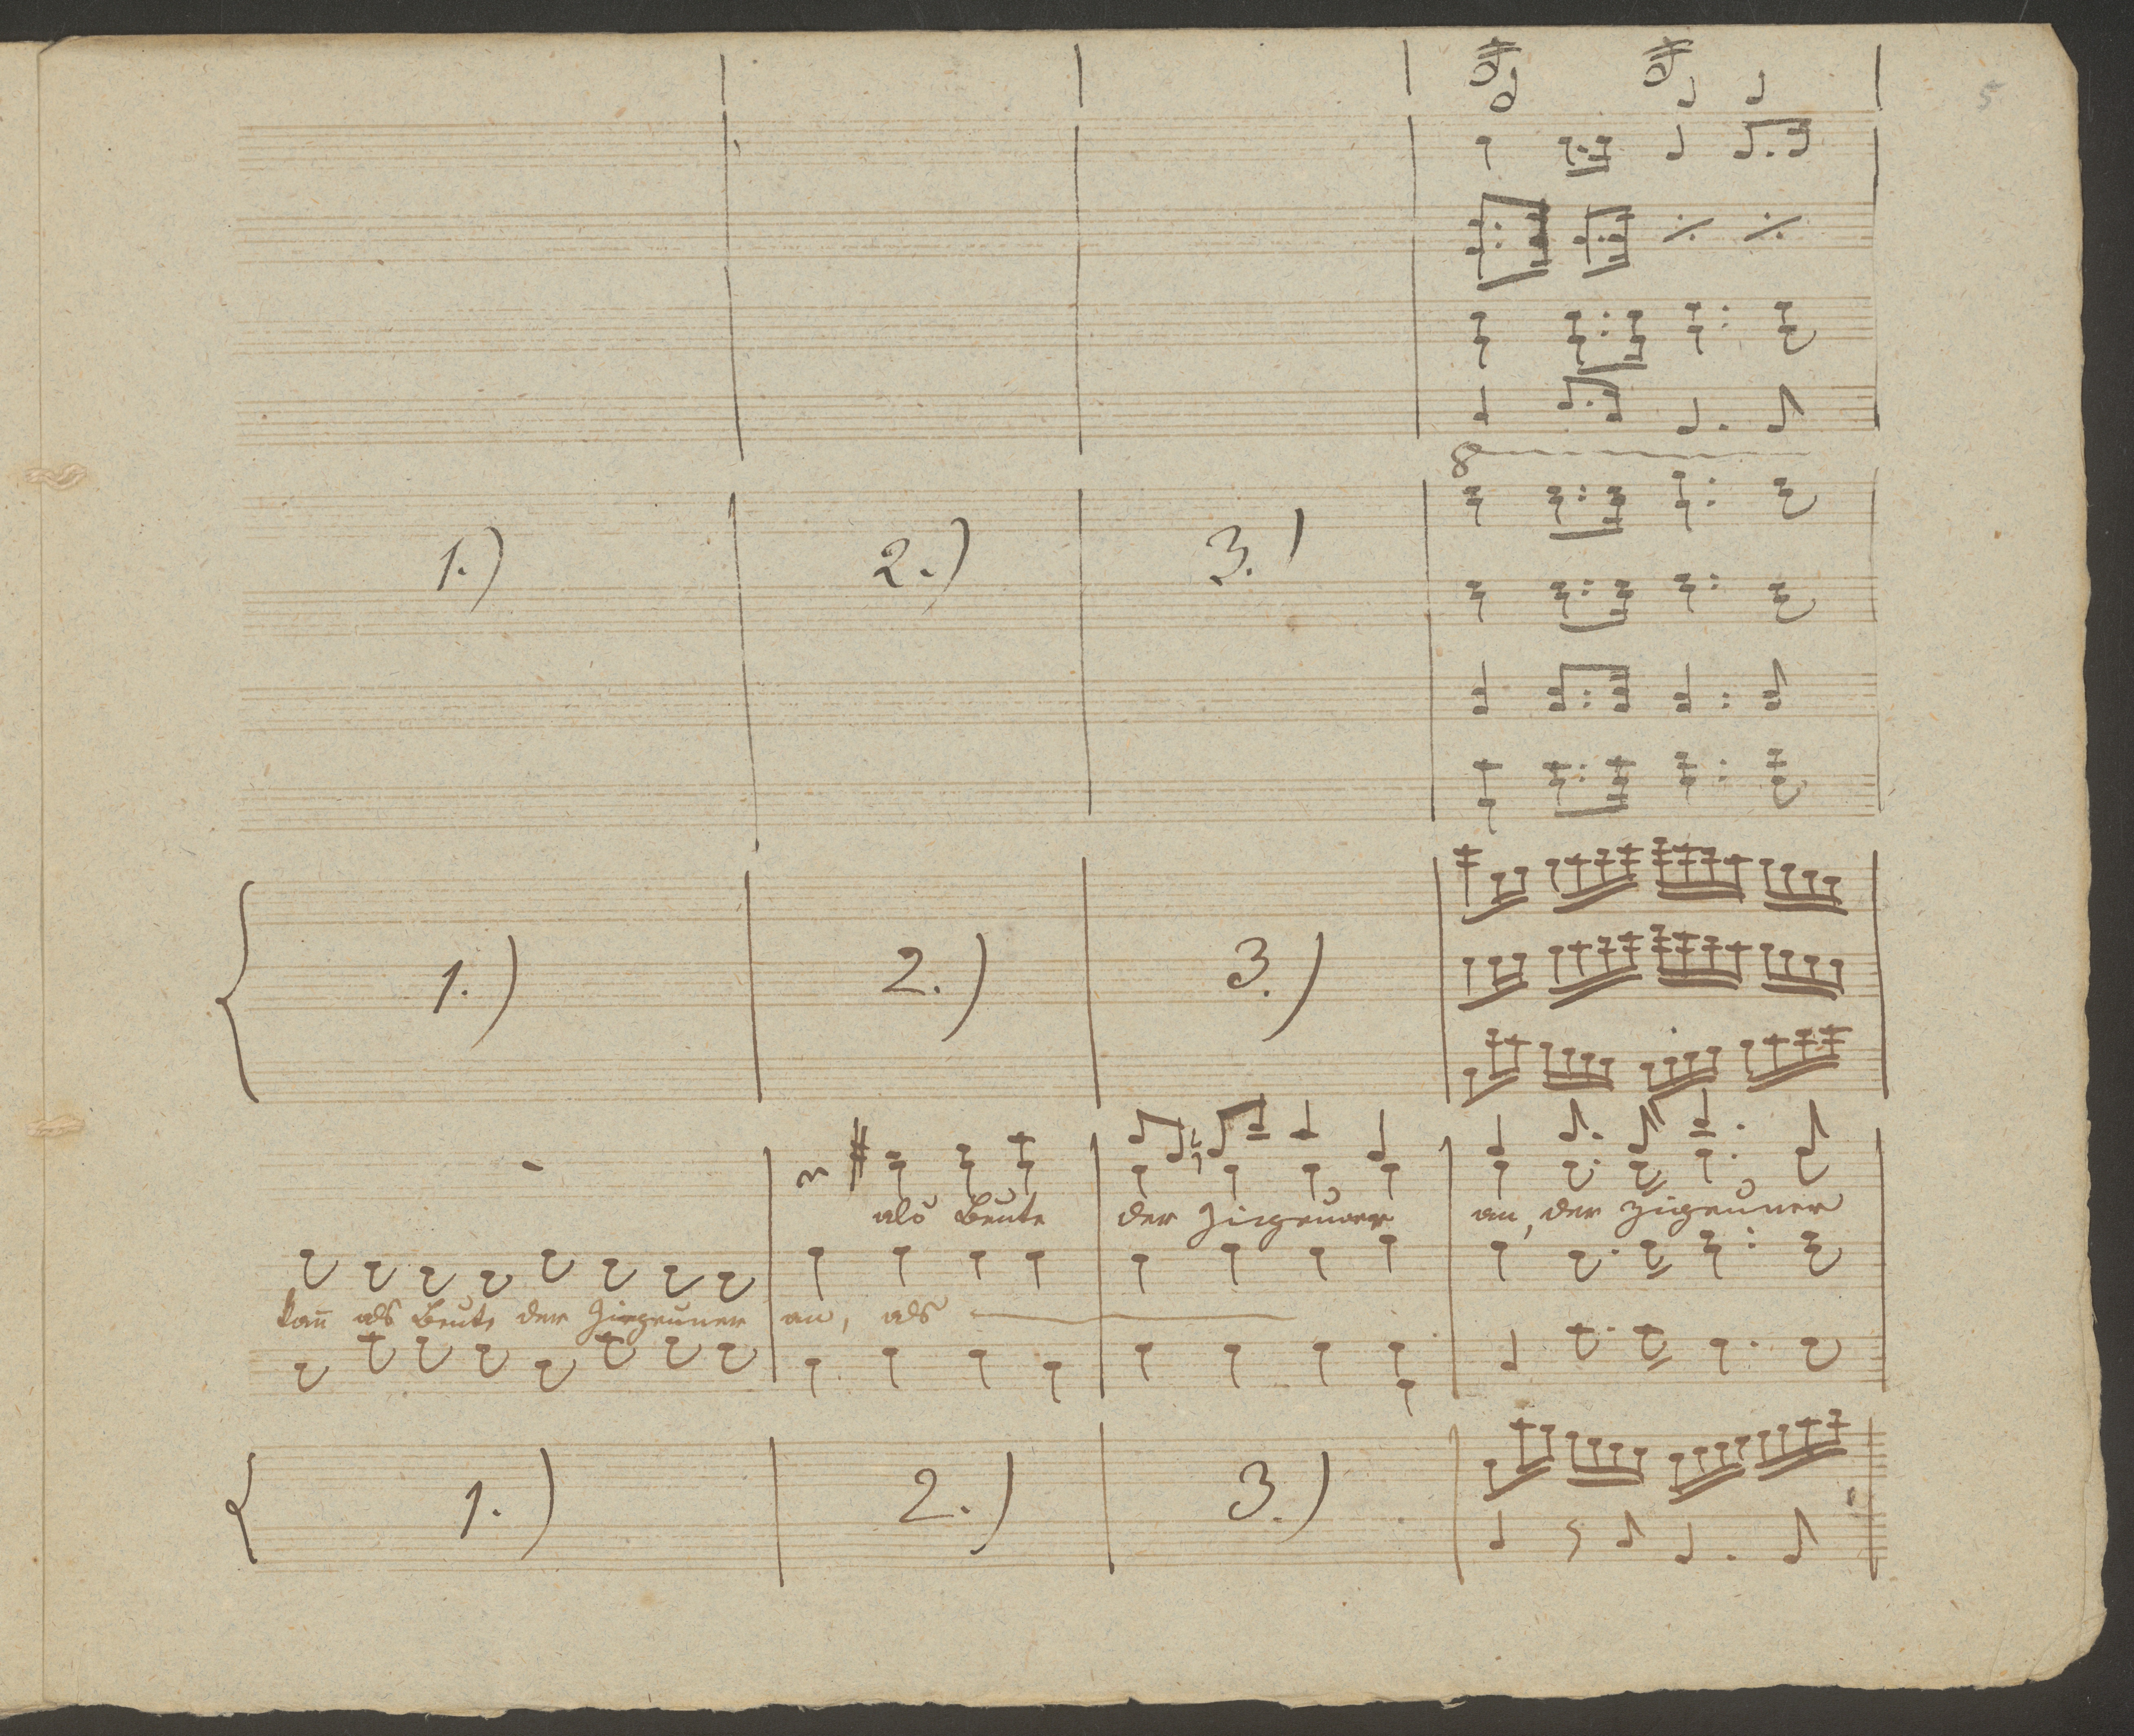 5
8
1.) 2.) 3.)
1.) 2.) 3.)
als Beute der Zigeuner an, der Zigeuner
kan̄ als Beute der Zigeuner an, als
1.) 2.) 3.)